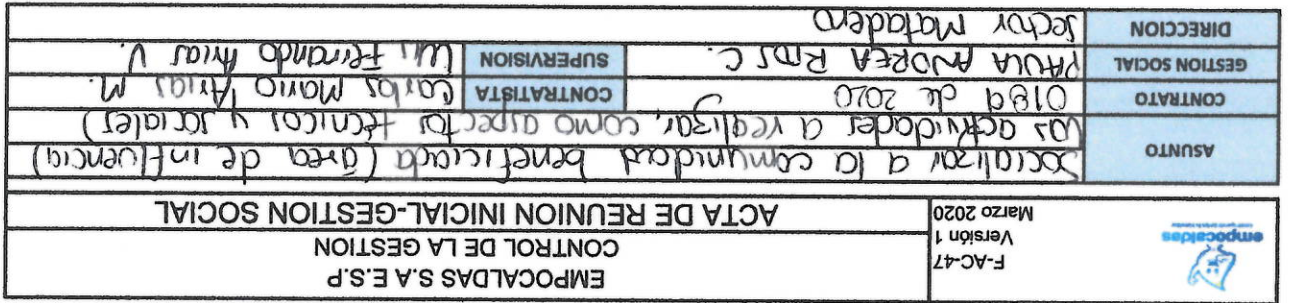 empocaldas
F-AC-47
Versión 1
Marzo 2020
EMPOCALDAS S.A E.S.P
CONTROL DE LA GESTION
ACTA DE REUNION INICIAL-GESTION SOCIAL
ASUNTO
Socializar a la comunidad beneficiada (área de influencia)
las actividades a realizar, como aspectos técnicos y sociales)
CONTRATO
0189 de 2020
CONTRATISTA
Carlos Mario Arias M.
GESTION SOCIAL
PAULA ANDREA RIOS C.
SUPERVISION
Luis Fernando Arias V.
DIRECCION
Sector Matadero